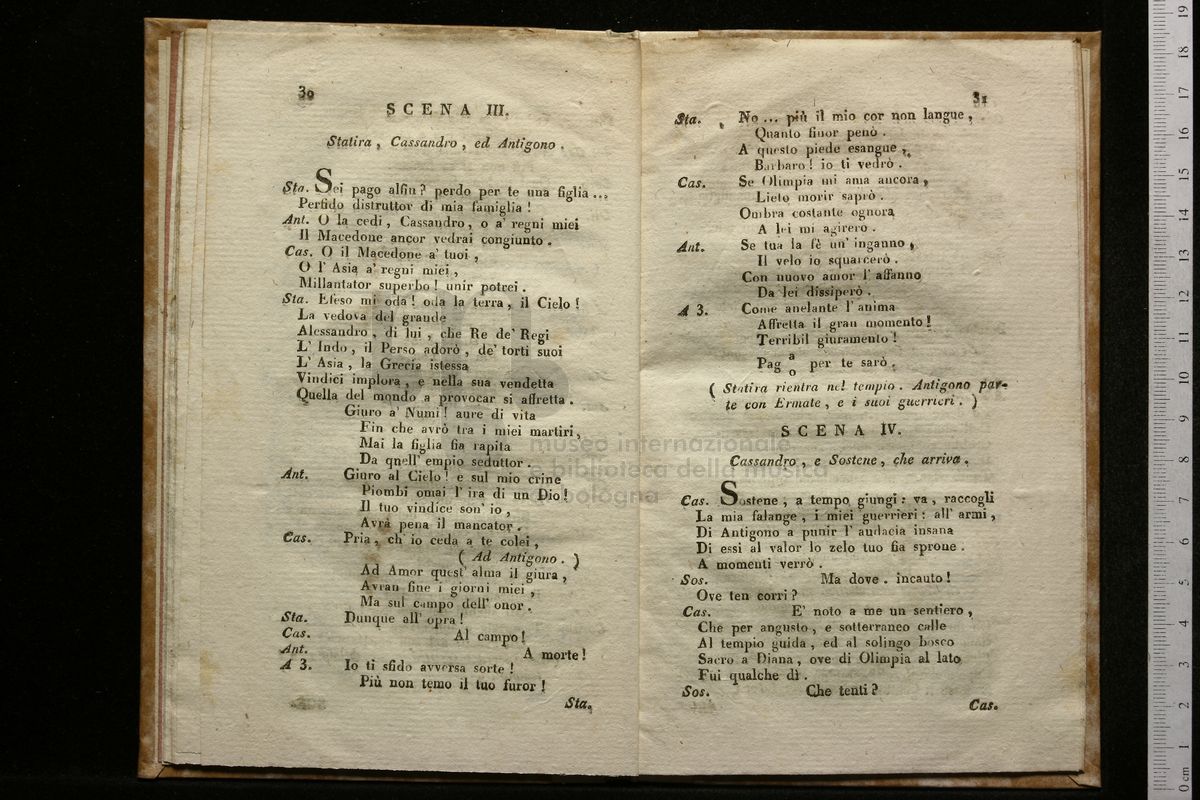 30
SCENA III.
Statira, Cassandro, ed Antigono.
Sta. Sei pago alfin? perdo per te una figlia ...
Perfido distruttor di mia famiglia!
Ant. O la cedi, Cassandro, o a' regni miei
Il Macedone ancor vedrai congiunto.
Cas. O il Macedone a' tuoi,
O l' Asia a' regni miei,
Millantator superbo! unir potrei.
Sta. Efeso mi oda! oda la terra, il Cielo!
La vedova del grande
Alessandro, di lui, che Re de' Regi
L' Indo, il Perso adorò, de' torti suoi
L' Asia, la Grecia istessa
Vindici implora, e nella sua vendetta
Quella del mondo a provocar si affretta.
Giuro a' Numi! aure di vita
Fin che avrò tra i miei martiri,
Mai la figlia fia rapita
Da quell' empio seduttor.
Ant. Giuro al Cielo! e sul mio crine
Piombi omai l' ira di un Dio!
Il tuo vindice son' io,
Avrà pena il mancator.
Cas. Pria, ch' io ceda a te colei,
( Ad Antigono. )
Ad Amor quest' alma il giura,
Avran fine i giorni miei,
Ma sul campo dell' onor.
Sta. Dunque all' opra!
Cas. Al campo!
Ant. A morte!
A 3. Io ti sfido avversa sorte!
Più non temo il tuo furor!
Sta.
31
Sta. No ... più il mio cor non langue,
Quanto finor penò.
A questo piede esangue,
Barbaro! io ti vedrò.
Cas. Se Olimpia mi ama ancora,
Lieto morir saprò.
Ombra costante ognora
A lei mi agirero.
Ant. Se tua la fè un' inganno,
Il velo io squarcerò.
Con nuovo amor l' affanno
Da lei dissiperò.
A 3. Come anelante l' anima
Affretta il gran momento!
Terribil giuramento!
Pag a/o per te sarò.
( Statira rientra nel tempio. Antigono par-
te con Ermate, e i suoi guerrieri. )
SCENA IV.
Cassandro, e Sostene, che arriva.
Cas. Sostene, a tempo giungi: va, raccogli
La mia falange, i miei guerrieri: all' armi,
Di Antigono a punir l' audacia insana
Di essi al valor lo zelo tuo fia sprone.
A momenti verrò.
Sos. Ma dove. incauto!
Ove ten corri?
Cas. E' noto a me un sentiero,
Che per angusto, e sotterraneo calle
Al tempio guida, ed al solingo bosco
Sacro a Diana, ove di Olimpia al lato
Fui qualche dì.
Sos. Che tenti?
Cas.
museo internazionale
e biblioteca della musica
bologna
0 cm 1 2 3 4 5 6 7 8 9 10 11 12 13 14 15 16 17 18 19